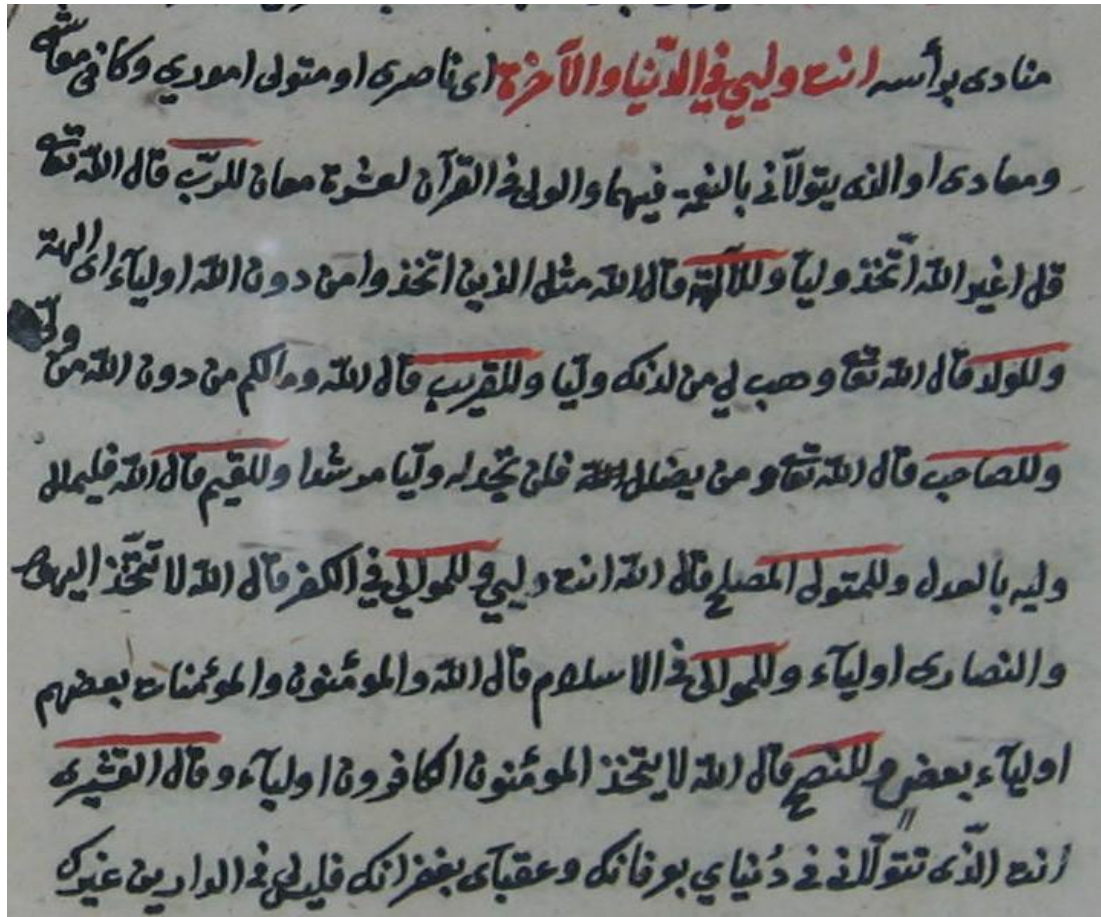 منادى برأسه انت وليي في الدّنيا والآخرة اى ناصرى او متولى امورى وكافى معاشى
ومعادى او الذى يتولّانى بالنعمة فيهما والولى فى القرآن لعشرة معان للربّ قال الله تعا
قل اغير الله اتّخذ وليا وللآلهة قال الله مثل الذين اتخذوا من دون الله اولياء اى الهة
وللولد قال الله تعا وهب لي من لدنك وليّا وللقريب قال الله ومالكم من دون الله من ولىّ
وللصاحب قال الله تعا ومن يضلل فلن تجد له وليّا مرشدا وللقيم قال الله فليملل
وليه بالعدل وللمتولى المصلح قال الله انت وليي وللموالي في الكفر قال الله لا تتّخذ اليهود
والنصارى اولياء وللموالى فى الاسلام قال الله والمؤمنون والمؤمنات بعضهم
اولياء بعض وللنصح قال الله لا يتخذ المؤمنون الكافرون اولياء وقال القشيرى
انت الّذى تتولّانى فى دُنياي بعرفانك وعقباى بغفرانك فليس لى فى الدارين غيرك